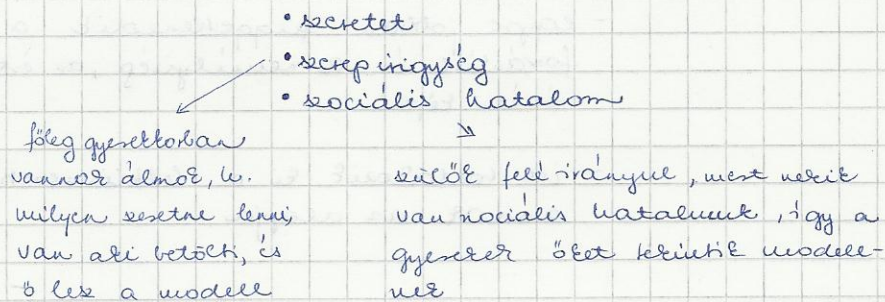 • szeretet
• szerep irigység
• szociális hatalom
főleg gyerekkorban
vannak álmok, h.
milyen szeretne lenni,
van aki betölti, és
ő lesz a modell
szülők felé irányul, mert nekik
van szociális hatalmuk, így a
gyerekek őket tekintik modell-
nek